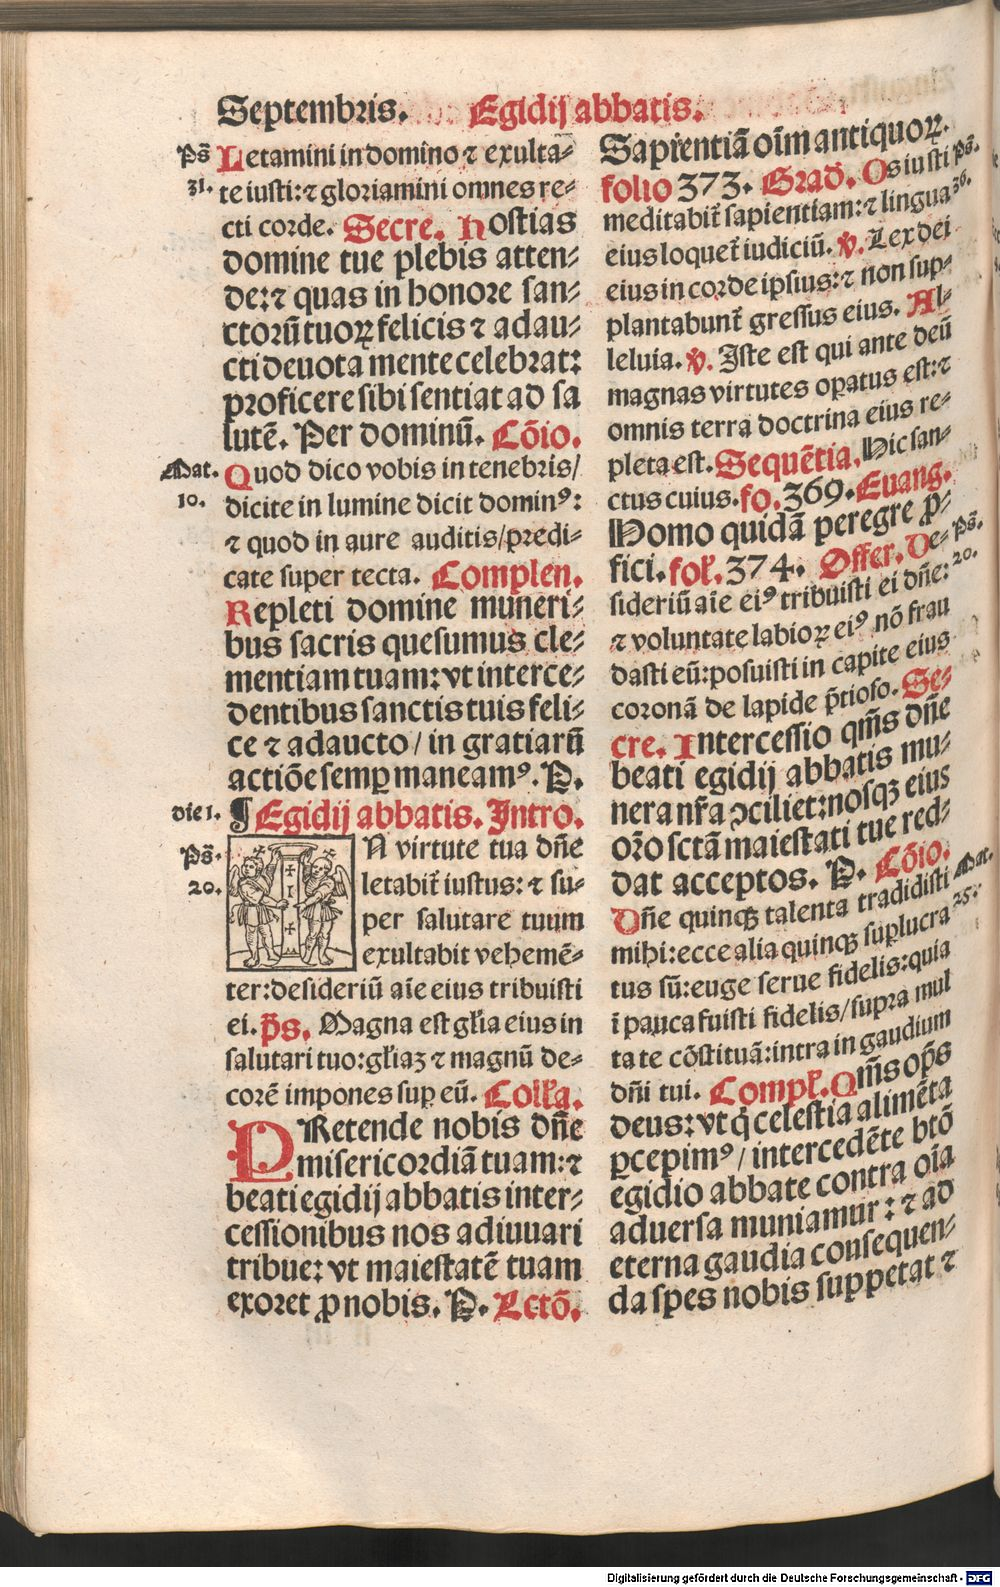 Septembris. Egidij abbatis.
Ps̄ Letamini in domino ⁊ exulta⸗
31. te iusti: ⁊ gloriamini omnes re⸗
cti corde. Secre. Hostias
domine tue plebis atten⸗
de: ⁊ quas in honore san⸗
ctorū tuoꝝ felicis ⁊ adau⸗
cti deuota mente celebrat:
proficere sibi sentiat ad sa
lutē. Per dominū. Cōio.
Mat. Quod dico vobis in tenebris/
10. dicite in lumine dicit dominꝰ:
⁊ quod in aure auditis/predi⸗
cate super tecta. Complen.
Repleti domine muneri⸗
bus sacris quesumus cle⸗
mentiam tuam: vt interce⸗
dentibus sanctis tuis feli⸗
ce ⁊ adaucto/ in gratiarū
actiōe semꝑ maneamꝰ. P.
die 1. ¶ Egidij abbatis. Intro.
Ps̄. IN virtute tua dn̄e
20. letabit̄ iustus: ⁊ su⸗
per salutare tuum
exultabit vehemē⸗
ter: desideriū aīe eius tribuisti
ei. p̄s. Magna est gl̄ia eius in
salutari tuo: gl̄iaꝫ ⁊ magnū de⸗
corē impones suꝑ eū. Coll̄a.
PRetende nobis dn̄e
misericordiā tuam: ⁊
beati egidij abbatis inter⸗
cessionibus nos adiuuari
tribue: vt maiestatē tuam
exoret ꝓ nobis. P. Lctō.
Sapientiā oīm antiquoꝝ.
folio 373. Grad. Os iusti Ps̄.
meditabit̄ sapientiam: ⁊ lingua 36.
eius loquet̄ iudiciū. ℣. Lex dei
eius in corde ipsius: ⁊ non sup⸗
plantabunt̄ gressus eius. Al⸗
leluia. ℣. Iste est qui ante deū
magnas virtutes oꝑatus est: ⁊
omnis terra doctrina eius re⸗
pleta est. Sequētia. Hic san⸗
ctus cuius. fo. 369. Euang.
Homo quidā peregre ꝓ⸗
fici. fol̄. 374. Offer. De⸗ Ps̄.
sideriū aīe eiꝰ tribuisti ei dn̄e: 20.
⁊ voluntate labioꝝ eiꝰ nō frau
dasti eū: posuisti in capite eius
coronā de lapide p̄tioso. Se⸗
cre. Intercessio qm̄s dn̄e
beati egidij abbatis mu⸗
nera nr̄a ꝯciliet: nosqꝫ eius
orō sctā maiestati tue red⸗
dat acceptos. P. Cōio.
Dn̄e quinqꝫ talenta tradidisti Mat.
mihi: ecce alia quinqꝫ suꝑlucra 25.
tus sū: euge serue fidelis: quia
ī pauca fuisti fidelis/supra mul
ta te cōstituā: intra in gaudium
dn̄i tui. Compl̄. Qm̄s op̄s
deus: vt q̇ celestia alimēta
ꝑcepimꝰ/ intercedēte btō
egidio abbate contra oīa
aduersa muniamur: ⁊ ad
eterna gaudia consequen⸗
da spes nobis suppetat ⁊
Digitalisierung gefördert durch die Deutsche Forschungsgemeinschaft - DFG